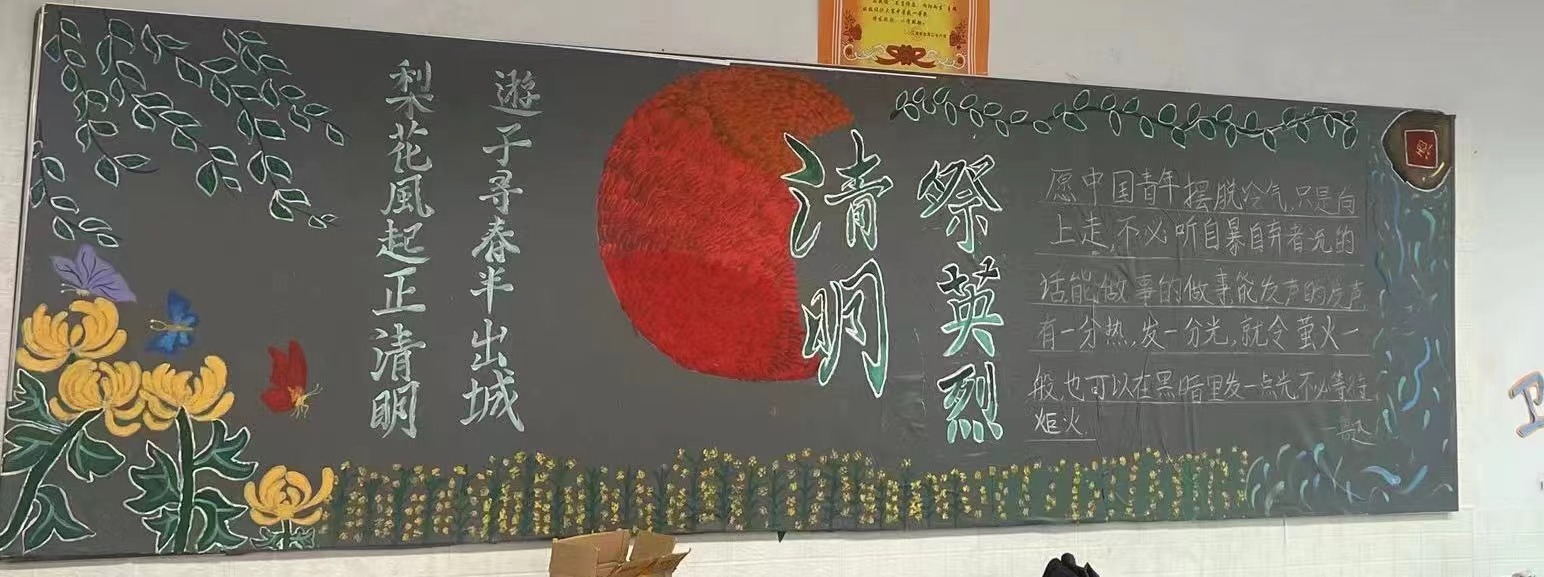 梨花風起正清明
遊子寻春半出城
清明
祭英烈
愿中国青年摆脱冷气,只是向
上走,不必听自暴自弃者流的
话能做事的做事能发声的发声
有一分热,发一分光,就令萤火一
般,也可以在黑暗里发一点光不必等待
炬火.
—鲁迅
卫